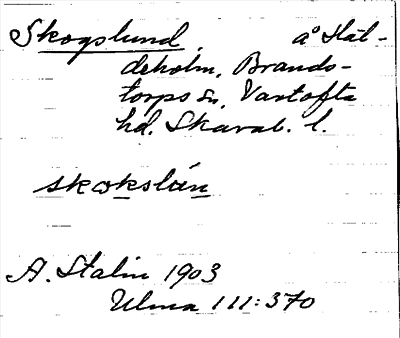 Skogslund, å Häl-
deholm, Brands-
torps sn, Vartofta
hd. Skarab. l.
skokslún
A. Stalin 1903
Ulma 111:370